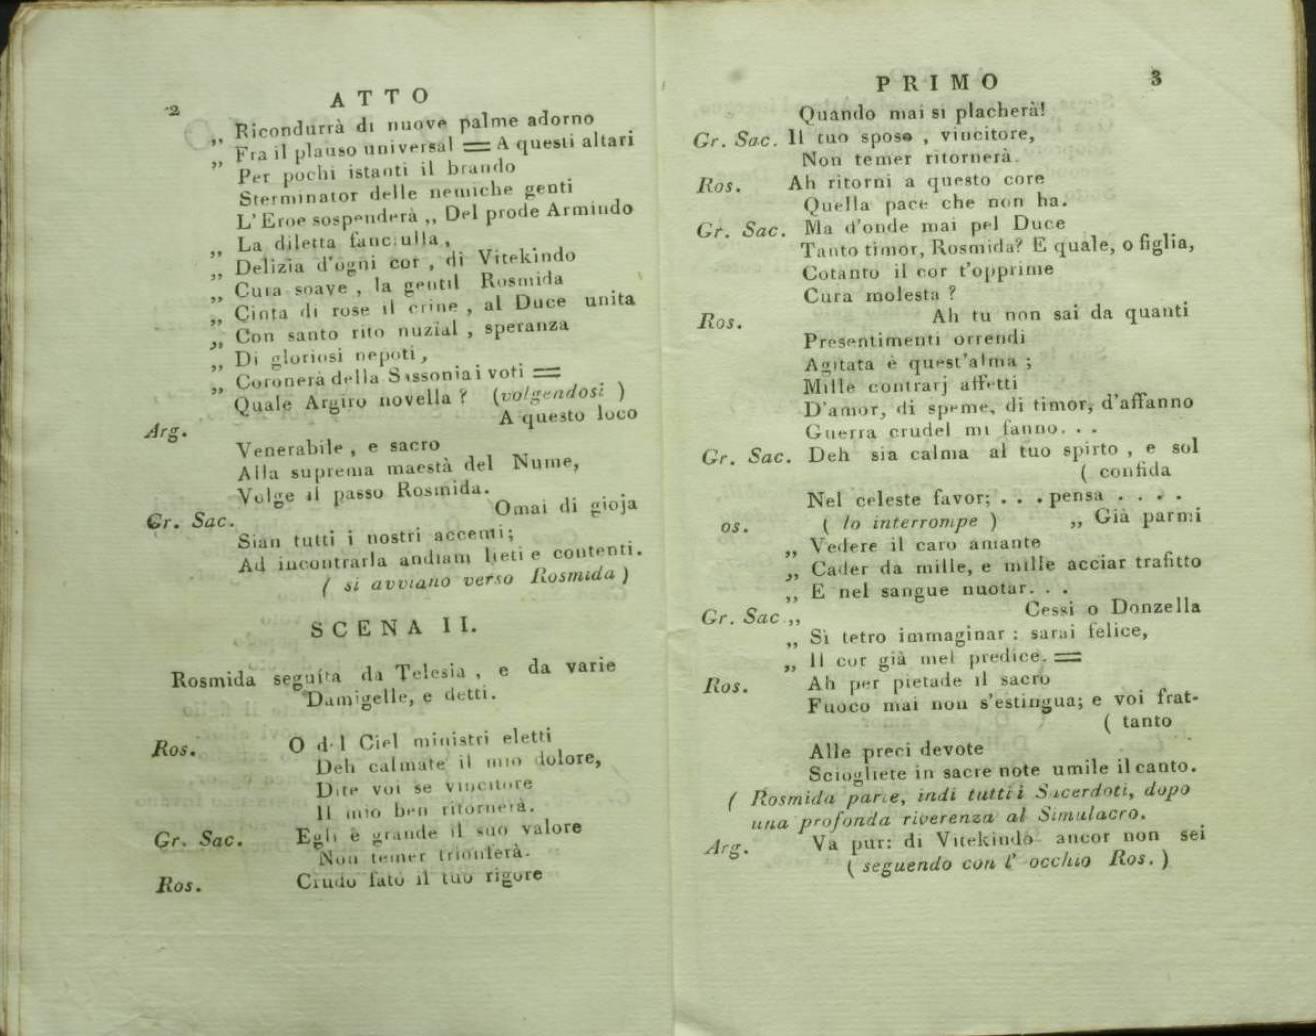 2
ATTO
„ Ricondurrà di nuove palme adorno
„ Fra il plauso universal = A questi altari
Per pochi istanti il brando
Sterminator delle nemiche genti
L'Eroe sospenderà „ Del prode Armindo
„ La diletta fanciulla,
„ Delizia d'ogni cor, di Vitekindo
„ Cura soave, la gentil Rosmida
„ Cinta di rose il crine, al Duce unita
„ Con santo rito nuzial, speranza
„ Di gloriosi nepoti,
„ Coronerà della Sassonia i voti =
Quale Argiro novella? (volgendosi)
Arg. A questo loco
Venerabile, e sacro
Alla suprema maestà del Nume,
Volge il passo Rosmida.
Gr. Sac. Omai di gioja
Sian tutti i nostri accenti;
Ad incontrarla andiam lieti e contenti.
( si avviano verso Rosmida )
SCENA II.
Rosmida seguita da Telesia, e da varie
Damigelle, e detti.
Ros. O del Ciel ministri eletti
Deh calmate il mio dolore,
Dite voi se vincitore
Il mio ben ritornerà.
Gr. Sac. Egli è grande il suo valore
Non temer trionferà.
Ros. Crudo fato il tuo rigore
PRIMO
3
Quando mai si placherà!
Gr. Sac. Il tuo sposo, vincitore,
Non temer ritornerà.
Ros. Ah ritorni a questo core
Quella pace che non ha.
Gr. Sac. Ma d'onde mai pel Duce
Tanto timor, Rosmida? E quale, o figlia,
Cotanto il cor t'opprime
Cura molesta?
Ros. Ah tu non sai da quanti
Presentimenti orrendi
Agitata è quest'alma;
Mille contrarj affetti
D'amor, di speme, di timor, d'affanno
Guerra crudel mi fanno. . .
Gr. Sac. Deh sia calma al tuo spirto, e sol
( confida
Nel celeste favor; . . . pensa . . . .
os. ( lo interrompe ) „ Già parmi
„ Vedere il caro amante
„ Cader da mille, e mille acciar trafitto
„ E nel sangue nuotar. . .
Gr. Sac „ Cessi o Donzella
„ Sì tetro immaginar: sarai felice,
„ Il cor già mel predice. =
Ros. Ah per pietade il sacro
Fuoco mai non s'estingua; e voi frat-
( tanto
Alle preci devote
Sciogliete in sacre note umile il canto.
( Rosmida parte, indi tutti i Sacerdoti, dopo
una profonda riverenza al Simulacro.
Arg. Va pur: di Vitekindo ancor non sei
( seguendo con l' occhio Ros. )